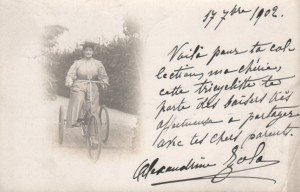 17 7bre 1902.
Voilà pour ta col
lection, ma chérie,
cette tricycliste te
porte des baisers très
affectueux a partager
avec tes chers parents.
Alexandrine Zola